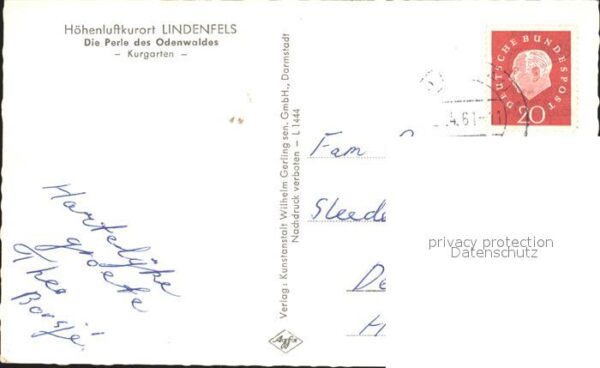 Höhenluftkurort LINDENFELS
Die Perle des Odenwaldes
– Kurgarten –
Hartelijke
groete
Theo
Borsjé.
Verlag: Kunstanstalt Wilhelm Gerling sen. GmbH., Darmstadt
Nachdruck verboten – L 1444
Agfa
DEUTSCHE BUNDESPOST
20
.4.61-11
Fam
Slede
De
H
privacy protection
Datenschutz